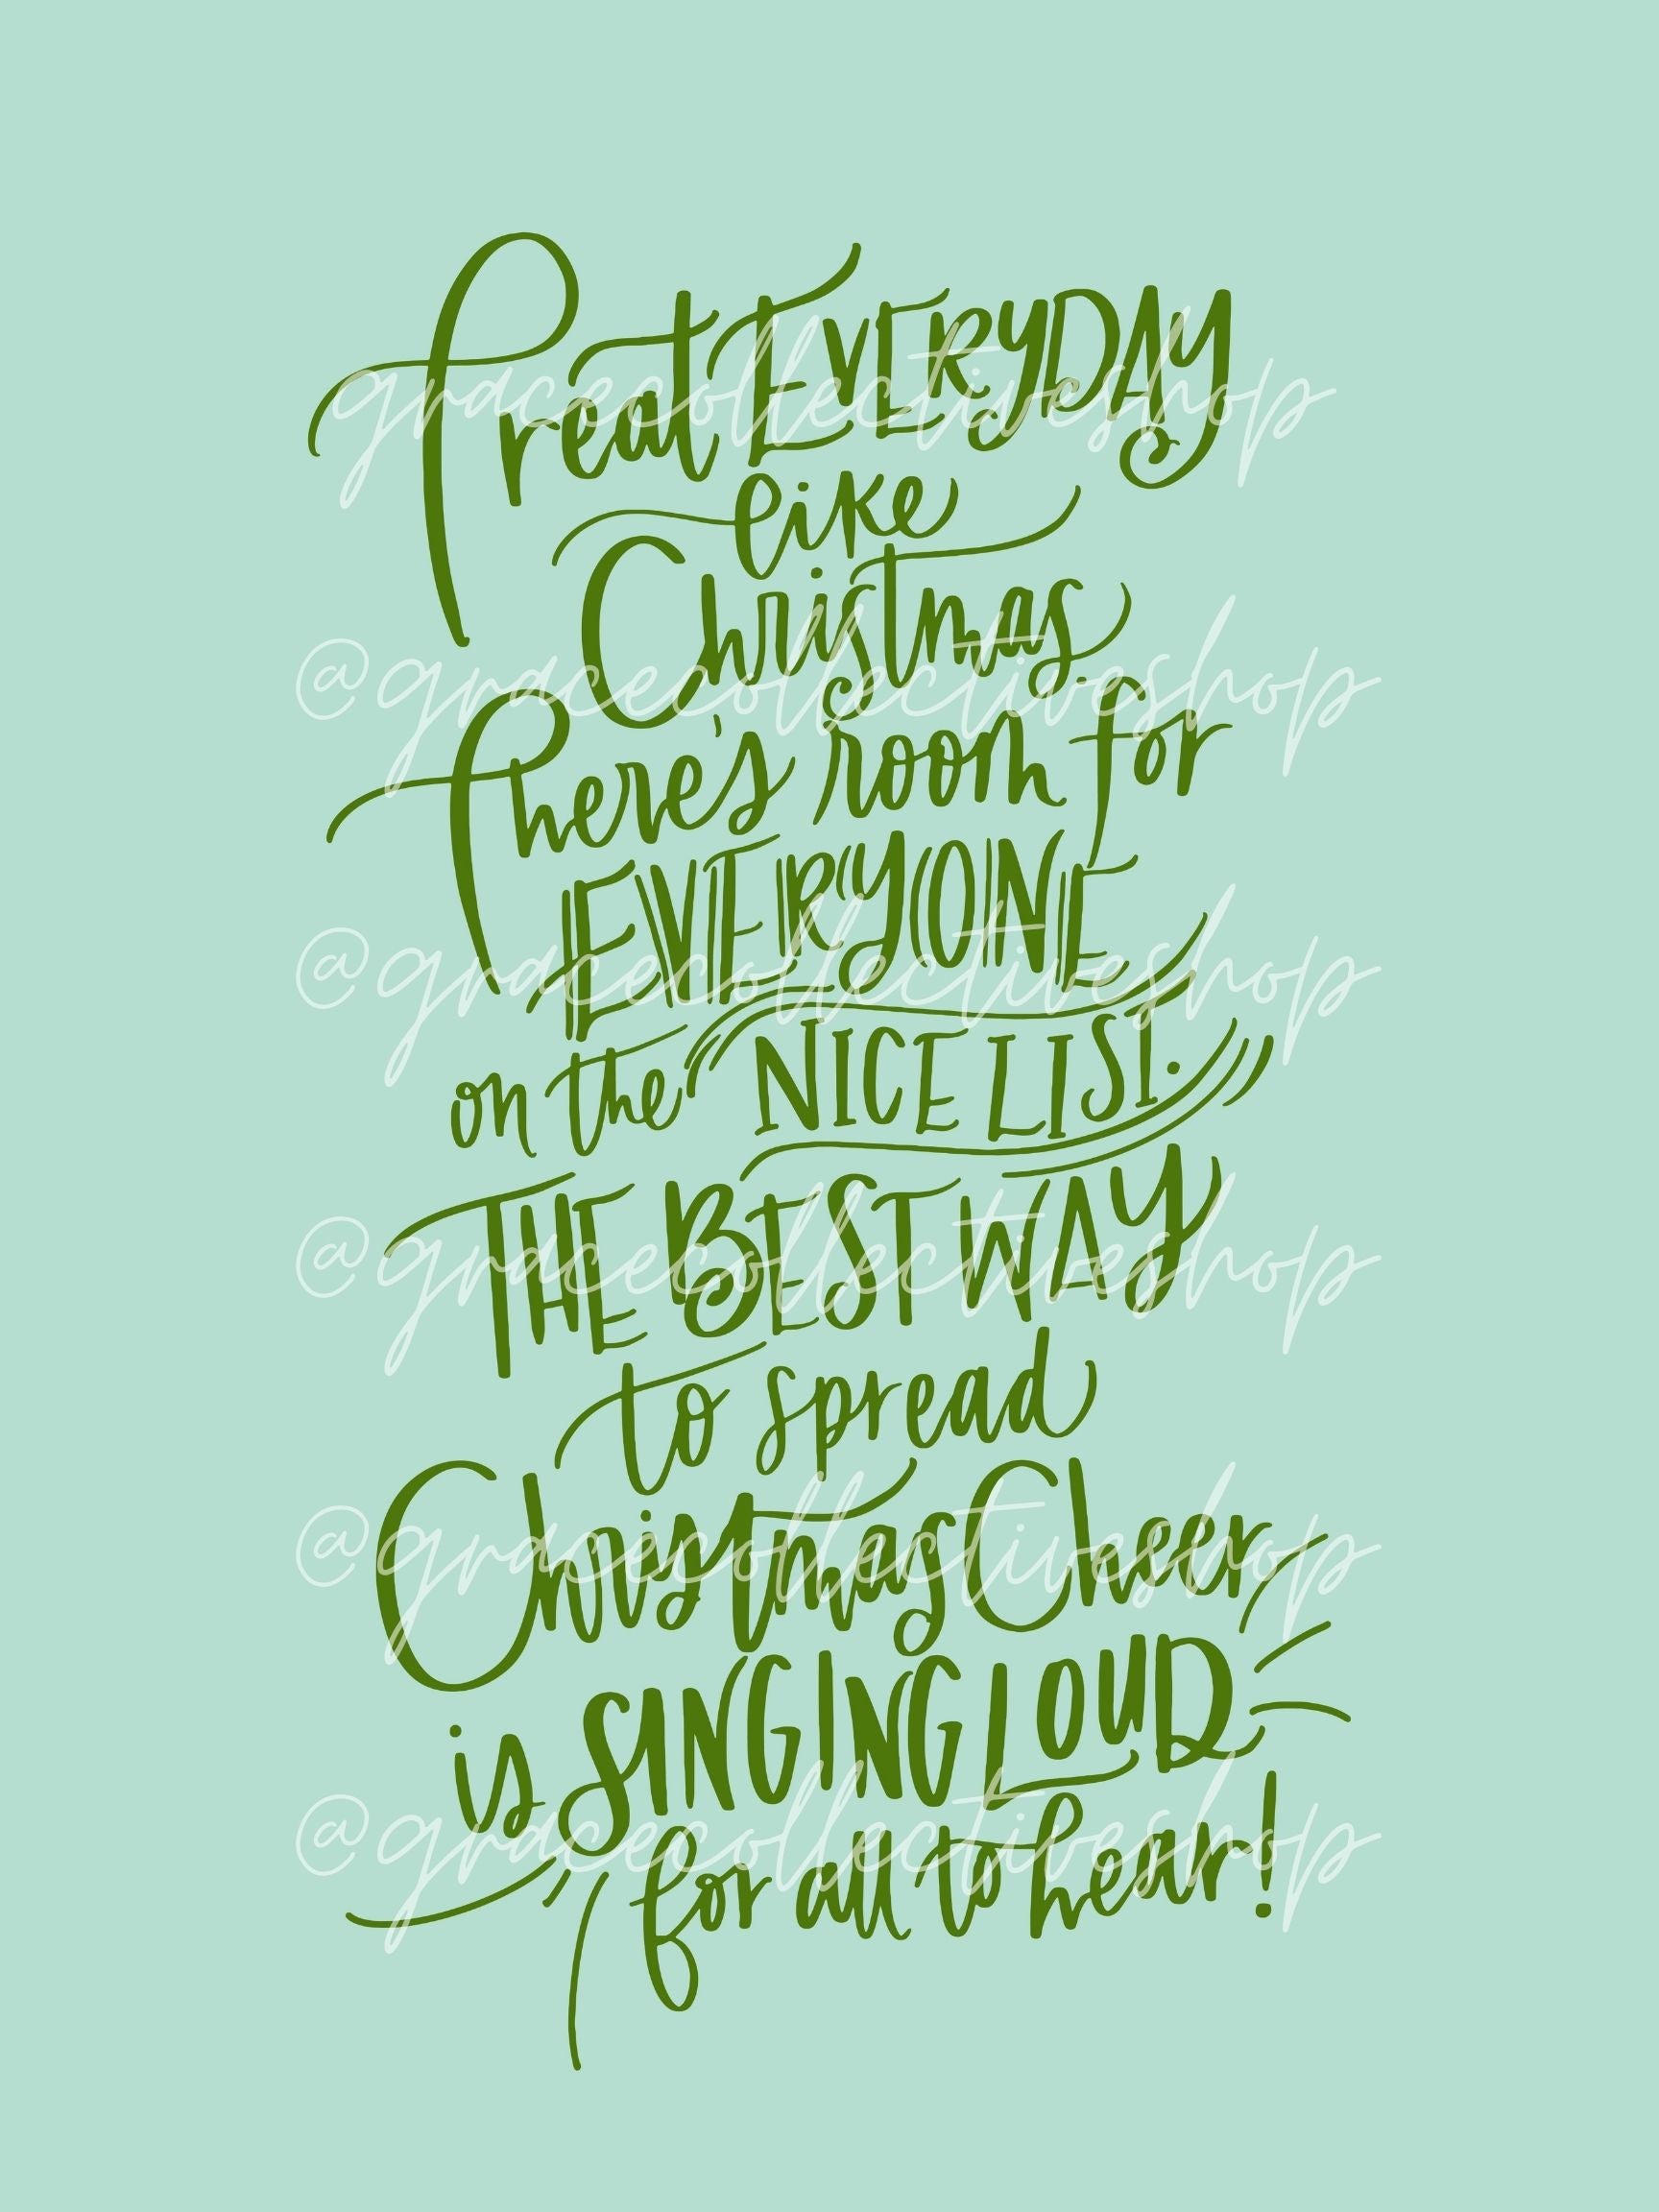 Treat EVERYDAY
gracecollectiveshop
like
Christmas.
@gracecollectiveshop
There's room for
EVERYONE
@gracecollectiveshop
on the NICE LIST.
THE BEST WAY
@gracecollectiveshop
to spread
Christmas Cheer
@gracecollectiveshop
is SINGING LOUD
for all to hear!
@gracecollectiveshop